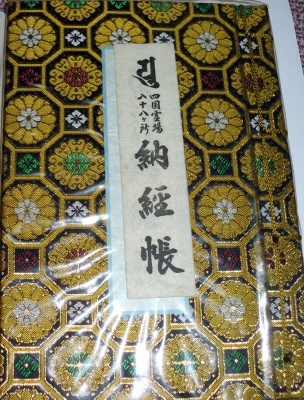 𑖀
四国霊場
八十八ヶ所
納経帳